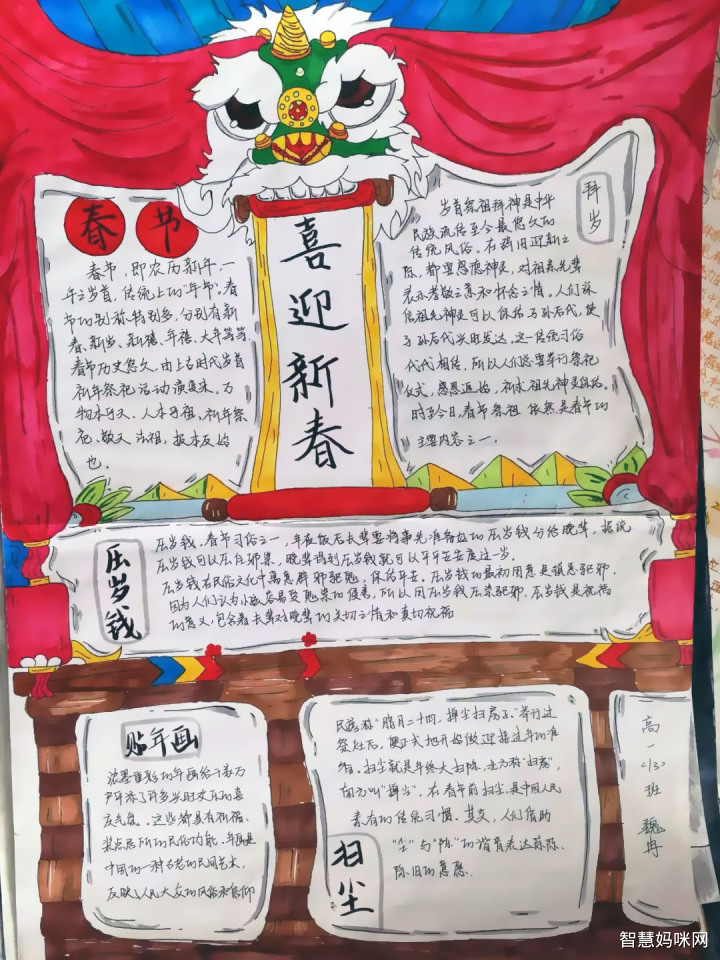 春节
春节，即农历新年，一
年之岁首，传统上的"年节"。春
节的别称特别多，分别有新
春、新岁、新禧、年禧、大年等等
春节历史悠久，由上古时代岁首
祈年祭祀活动演变来。万
物本乎天、人本乎祖，祈年祭
祀、敬天法祖，报本反始
也。
喜迎新春
拜岁
岁首祭祖拜神是中华
民族流传至今最悠久的
传统风俗。在辞旧迎新之
际，都要感恩神灵，对祖先先辈
表示孝敬之意和怀念之情，人们深
信祖先神灵可以保佑子孙后代，使
子孙后代兴旺发达，这一传统习俗
代代相传，所以人们总要举行祭祀
仪式，感恩返始，祈求祖先神灵保佑。
时至今日，春节祭祖依然是春节的
主要内容之一。
压岁钱
压岁钱，春节习俗之一，年夜饭后长辈要将事先准备好的压岁钱分给晚辈，据说
压岁钱可以压住邪祟，晚辈得到压岁钱就可以平平安安度过一岁。
压岁钱在民俗文化中寓意辟邪驱鬼，保佑平安。压岁钱的最初用意是镇恶驱邪。
因为人们认为小孩容易受鬼祟的侵害，所以用压岁钱压祟驱邪。压岁钱是祝福
的意义，包含着长辈对晚辈的关切之情和真切祝福
贴年画
浓墨重彩的年画给千家万
户平添了许多兴旺欢乐的喜
庆气氛。这些都具有祈福、
中国的一种古老的民间艺术，
反映了人民大众的风俗和信仰
扫尘
民谚称"腊月二十四，掸尘扫房子。"举行过
祭灶后，便正式地开始做迎接过年的准
备。扫尘就是年终大扫除，北方称"扫房"，
南方叫"掸尘"。在春节前扫尘，是中国人民
素有的传统习惯。其实，人们借助
"尘"与"陈"的谐音表达除陈、
除旧的意愿。
高一(13)班 魏冉
智慧妈咪网